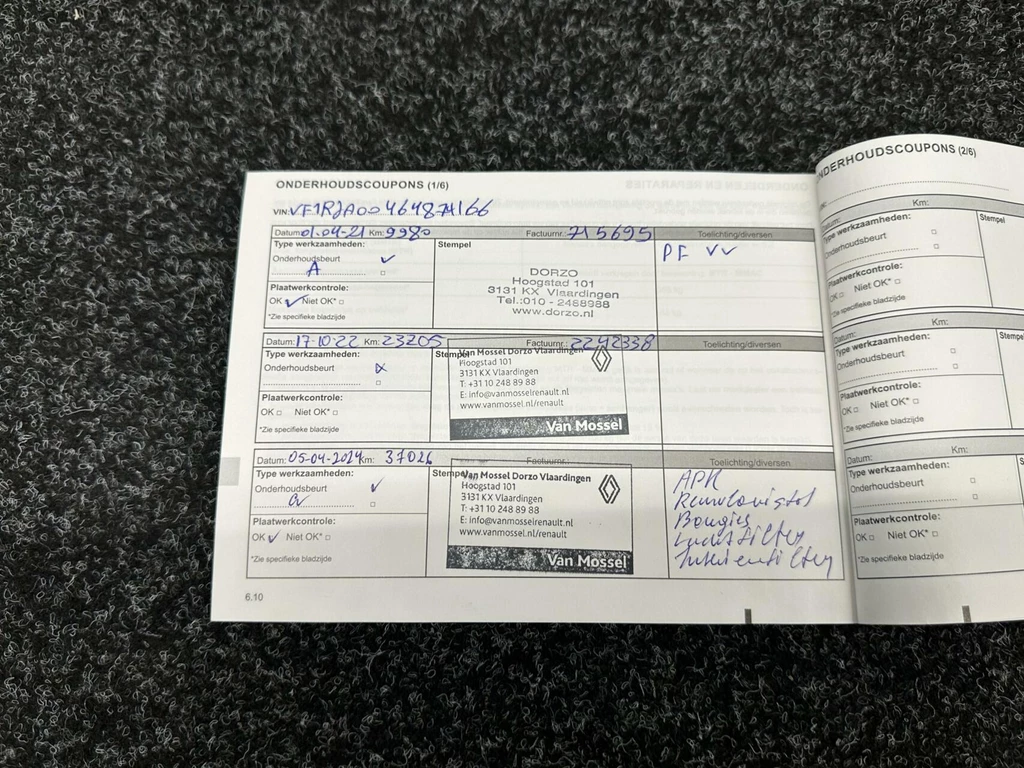 ONDERHOUDSCOUPONS (1/6)
VIN:
Datum: 01-04-21 Km: 9980 Factuurnr.: 715695 Toelichting/diversen
Type werkzaamheden: Stempel PF VV
Onderhoudsbeurt
A
DORZO
Hoogstad 101
3131 KX Vlaardingen
Tel.:010 - 2488988
www.dorzo.nl
Plaatwerkcontrole:
OK Niet OK*
*Zie specifieke bladzijde
Datum: 17-10-22 Km: 23205 Factuurnr.: 2242338 Toelichting/diversen
Type werkzaamheden: Stempel
Onderhoudsbeurt
Van Mossel Dorzo Vlaardingen
Hoogstad 101
3131 KX Vlaardingen
T: +31 10 248 89 88
E: info@vanmosselrenault.nl
www.vanmossel.nl/renault
Van Mossel
Plaatwerkcontrole:
OK Niet OK*
*Zie specifieke bladzijde
Datum: 05-04-2024 Km: 37026 Factuurnr.: Toelichting/diversen
Type werkzaamheden: Stempel
Onderhoudsbeurt
Van Mossel Dorzo Vlaardingen
Hoogstad 101
3131 KX Vlaardingen
T: +31 10 248 89 88
E: info@vanmosselrenault.nl
www.vanmossel.nl/renault
Van Mossel
Plaatwerkcontrole:
OK Niet OK*
*Zie specifieke bladzijde
APK
Bougies
Luchtfilter
Interieurfilter
6.10
ONDERHOUDSCOUPONS (2/6)
Datum: Km:
Type werkzaamheden: Stempel
Onderhoudsbeurt
Plaatwerkcontrole:
OK Niet OK*
*Zie specifieke bladzijde
Datum: Km:
Type werkzaamheden: Stempe
Onderhoudsbeurt
Plaatwerkcontrole:
OK Niet OK*
*Zie specifieke bladzijde
Datum: Km:
Type werkzaamheden: Stem
Onderhoudsbeurt
Plaatwerkcontrole:
OK Niet OK*
*Zie specifieke bladzijde